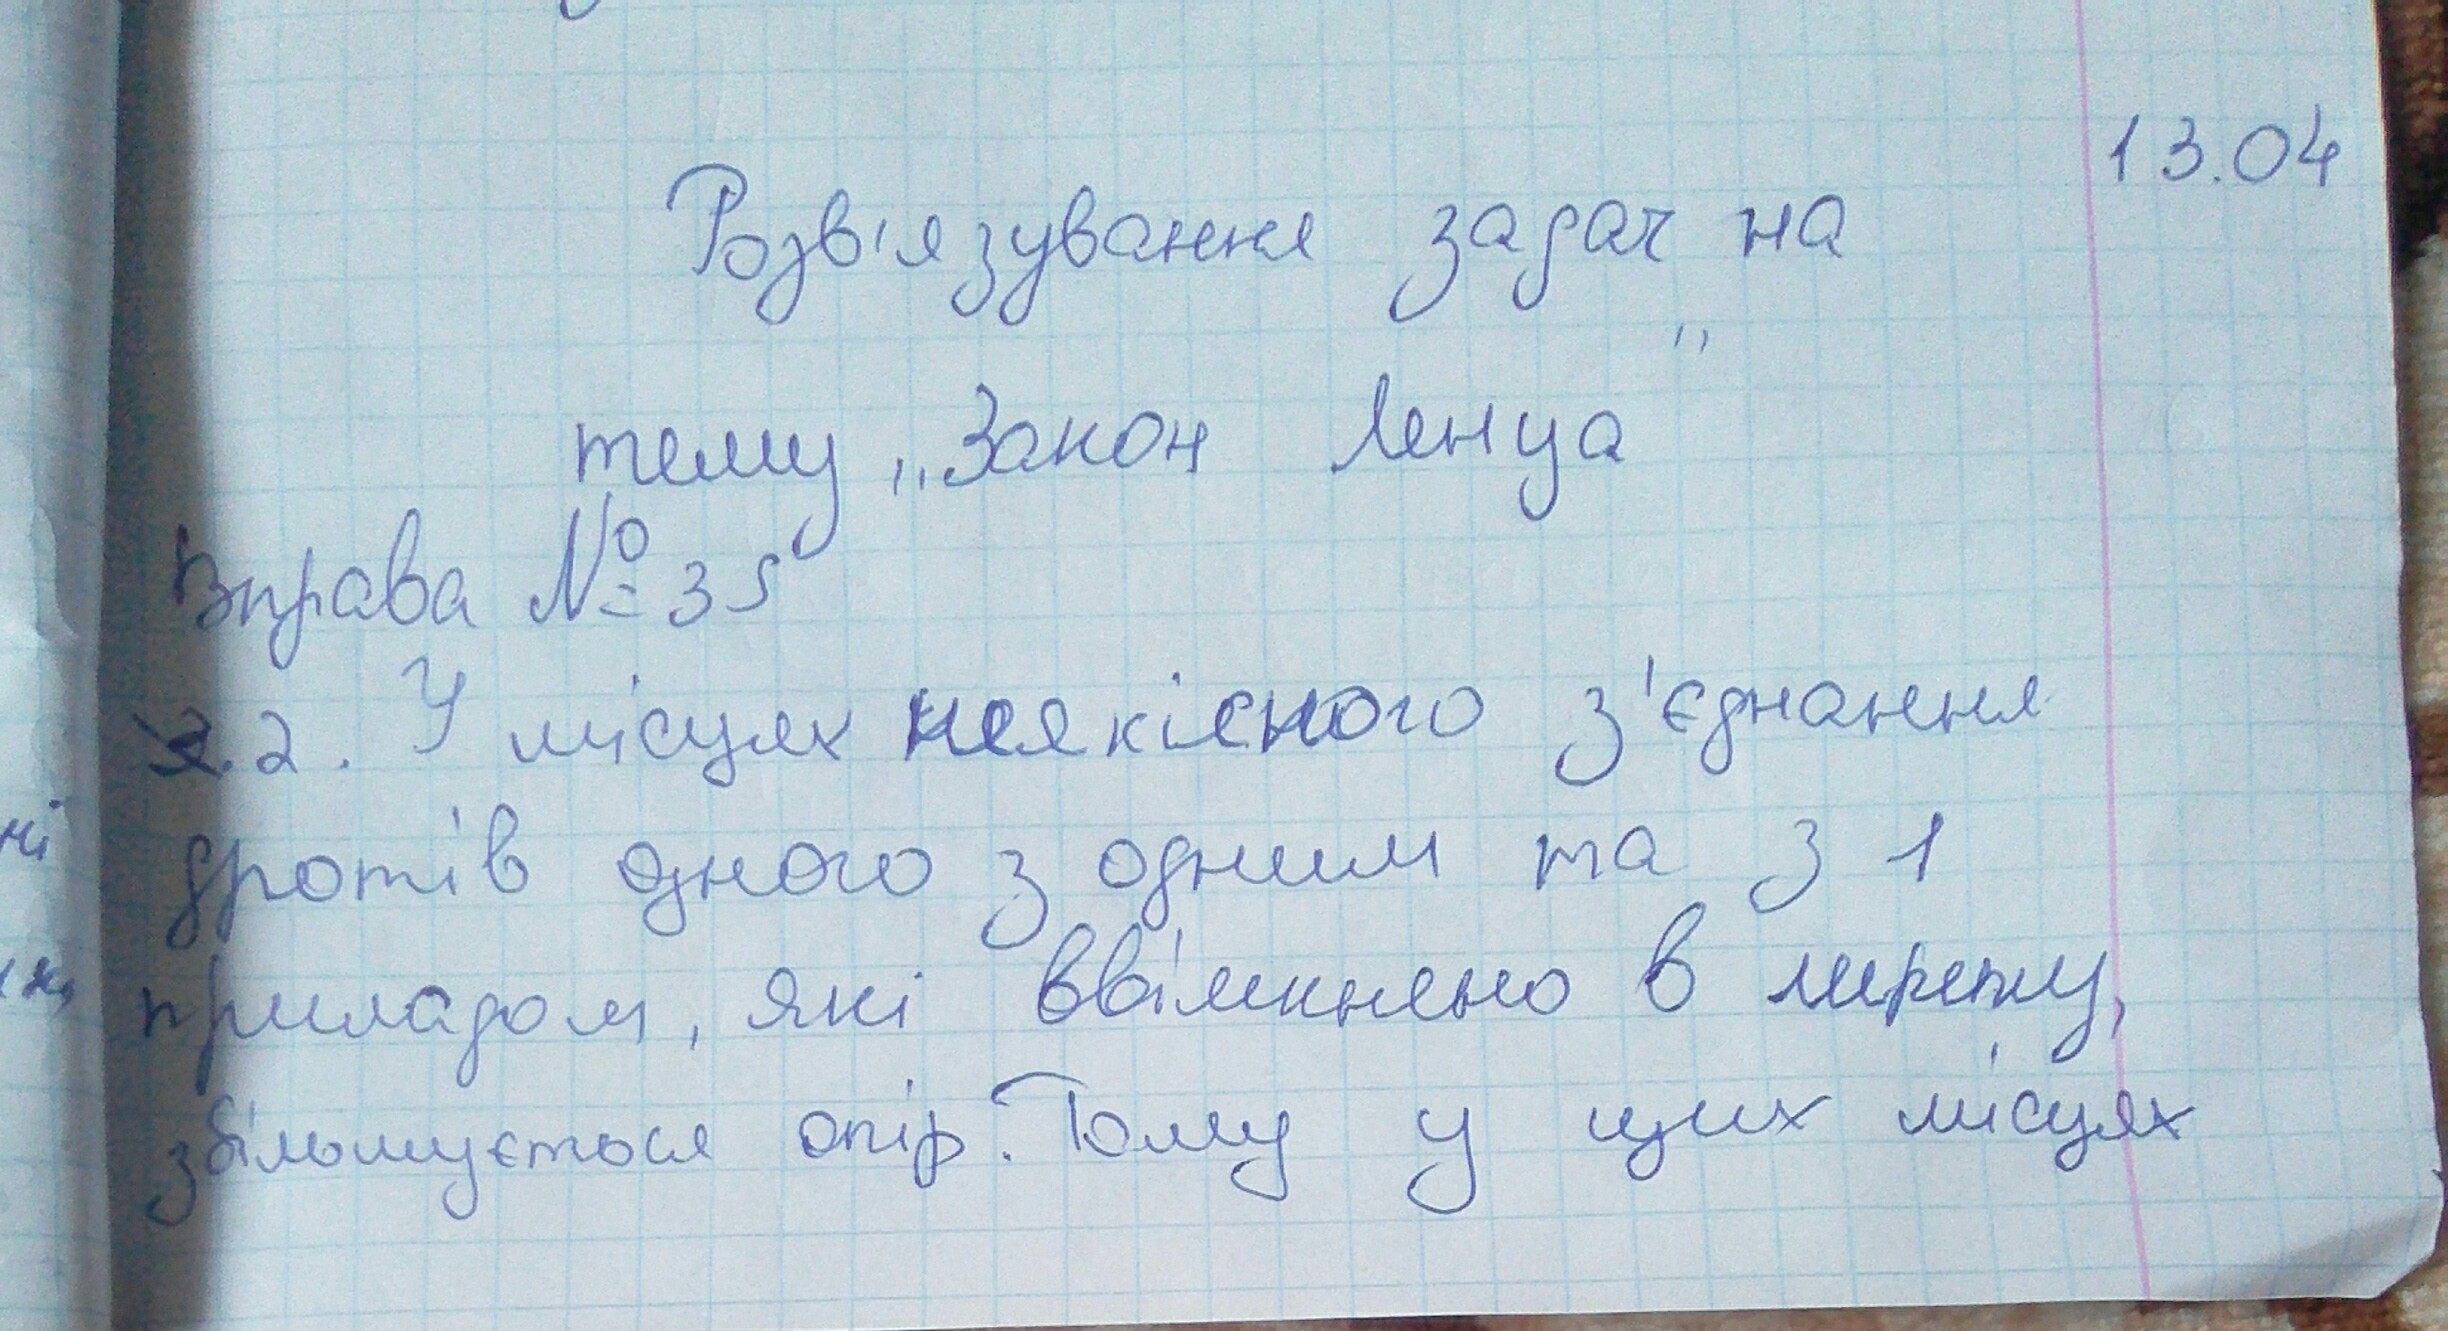 13.04
Розв'язування задач на
тему „Закон Ленца"
Вправа № 35
2. У місцях неякісного з'єднання
дротів одного з одним та з 1
приладом, які ввімкнено в мережу,
збільшується опір. Тому у цих місцях